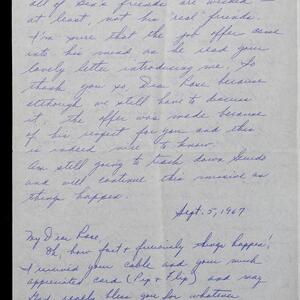 all of Bea's friends are weaned —
at least, not his "real" friends.
I'm sure that the job offer came
into his mind as he read your
lovely letter introducing me. So
thank you so, Dear Rose because
although we still have to discuss
it, the offer was made because
of his respect for you and this
is indeed nice to know.
Am still going to track down
and will continue this missive as
things happen!
Sept. 5, 1967
My Dear Rose,
Oh, how fast & furiously things happen!
I received your cable and your much
appreciated card (Pip & Flip) and may
God really bless you for whatever